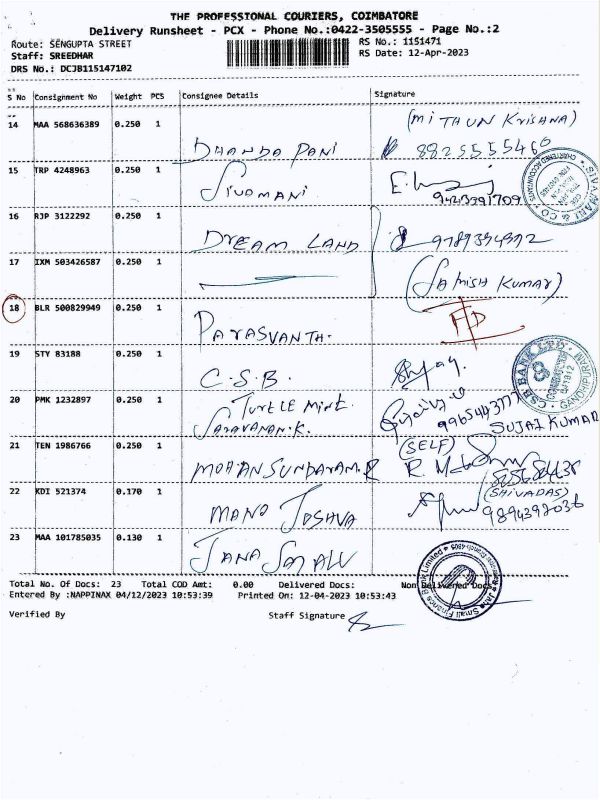 THE PROFESSIONAL COURIERS, COIMBATORE
Delivery Runsheet - PCX - Phone No.:0422-3505555 - Page No.:2
Route: SENGUPTA STREET
RS No.: 1151471
Staff: SREEDHAR
RS Date: 12-Apr-2023
DRS No.: DCJB115147102
S No Consignment No Weight PCS Consignee Details Signature
(MITHUN KRISHNA)
14 MAA 568636389 0.250 1
DHANDA PANI 8825555460
15 TRP 4248963 0.250 1
SIVAMANI
SIVAMANI & CO
CHARTERED ACCOUNTANTS
16 RJP 3122292 0.250 1
DREAM LAND
17 IXM 503426587 0.250 1
(SATHISH KUMAR)
18 BLR 500829949 0.250 1
PARASVANTH.
19 STY 83188 0.250 1
C.S.B.
CSB BANK LTD.
GANDHIPURAM
20 PMK 1232897 0.250 1
TURTLE MINT.
SARAVANAN.K.
SUJAI KUMAR
21 TEN 1986766 0.250 1
(SELF)
MOHANSUNDARAM.R
22 KDI 521374 0.170 1
(SHIVADAS)
MANO JOSHVA 9894392036
23 MAA 101785035 0.130 1
JANA SMALL
Total No. Of Docs: 23 Total COD Amt: 0.00 Delivered Docs: Non Delivered Docs:
Jana Small Finance Bank Limited
Entered By :NAPPINAX 04/12/2023 10:53:39 Printed On: 12-04-2023 10:53:43
Verified By Staff Signature